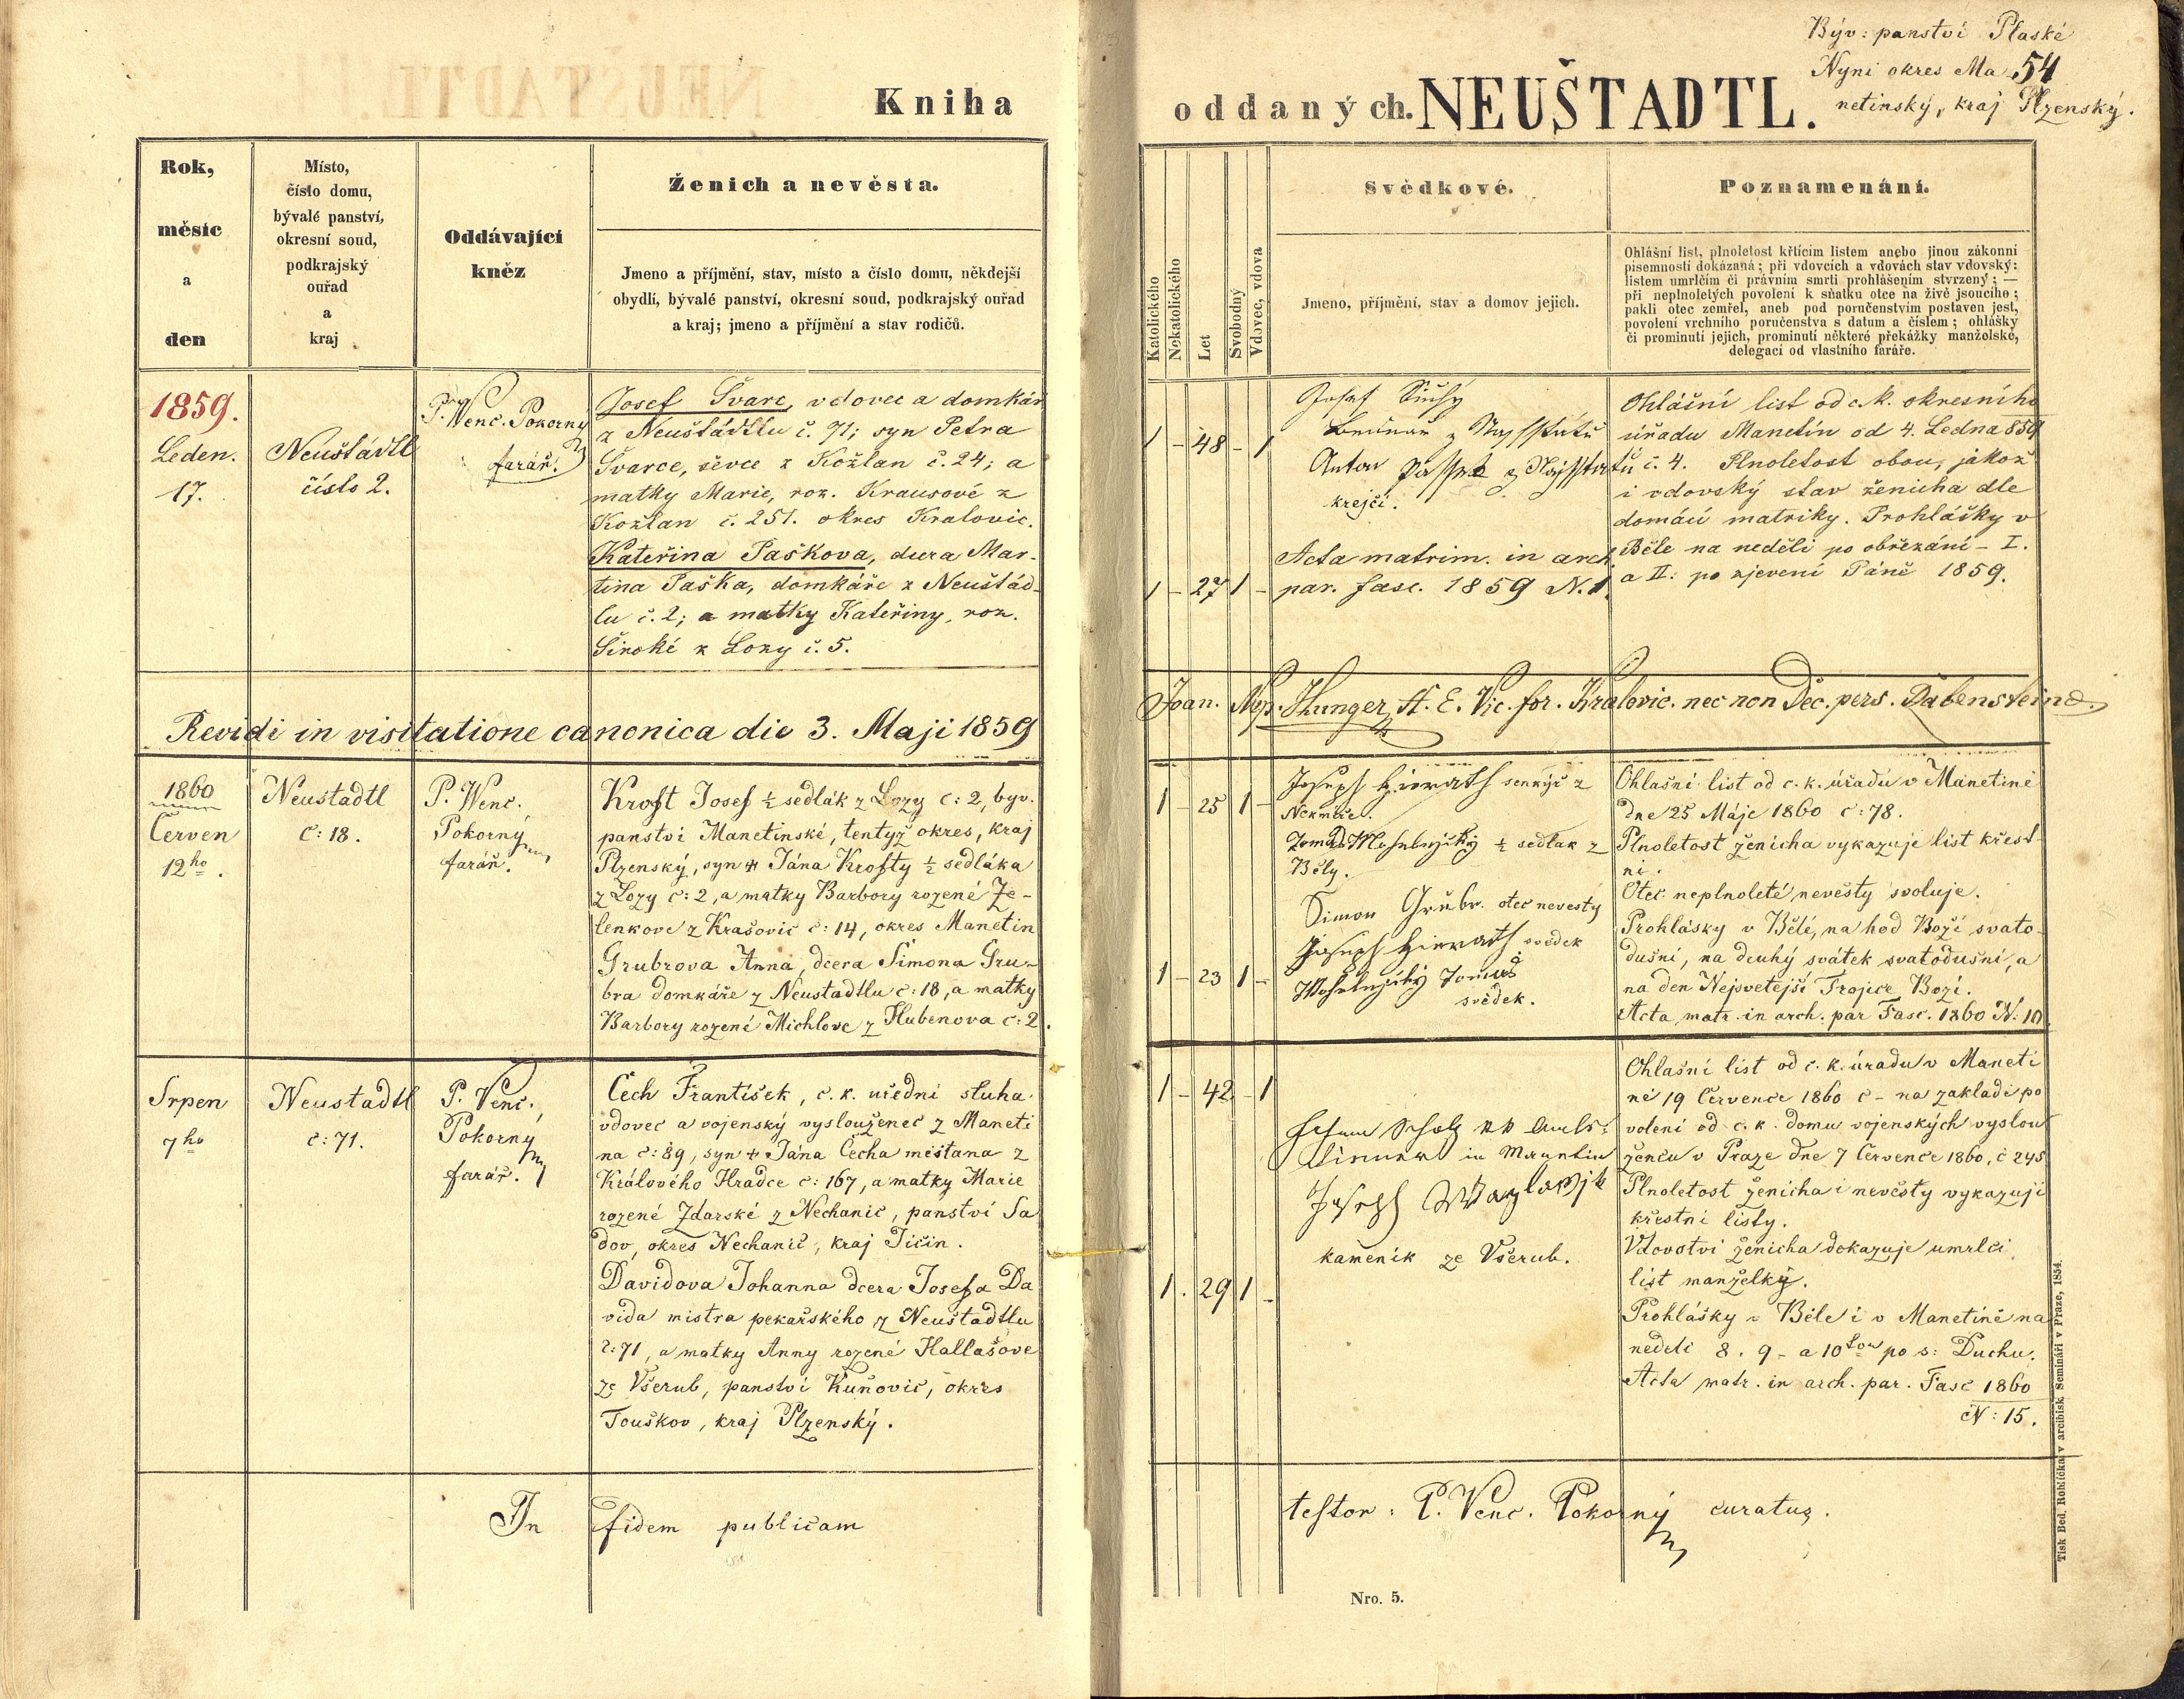 Býv: panství Plaské
Nyni okres Ma 54
netinský, kraj Plzenský.
Kniha
oddaných. NEUŠTADTL.
Rok,
měsíc
a
den
Místo,
číslo domu,
bývalé panství,
okresní soud,
podkrajský
ouřad
a
kraj
Oddávající
kněz
Ženich a nevěsta.
Jmeno a příjmění, stav, místo a číslo domu, někdejší
obydlí, bývalé panství, okresní soud, podkrajský ouřad
a kraj; jmeno a příjmění a stav rodičů.
Katolického
Nekatolického
Let
Svobodný
Vdovec, vdova
Svědkové.
Jmeno, příjmění, stav a domov jejich.
Poznamenání.
Ohlášní list, plnoletost křtícím listem anebo jinou zákonní
písemností dokázaná; při vdovcích a vdovách stav vdovský:
listem umrlčím či právním smrti prohlášením stvrzený; —
při neplnoletých povolení k sňatku otce na živě jsoucího;
pakli otec zemřel, aneb pod poručenstvím postaven jest,
povolení vrchního poručenstva s datum a číslem; ohlášky
či prominutí jejich, prominutí některé překážky manželské,
delegací od vlastního faráře.
1859.
Leden.
17.
Neuštádtl
číslo 2.
P. Wenc. Pokorny
farář.
Josef Švarc, vdovec a domkář
z Neuštádtlu č. 71; syn Petra
Švarce, ševce z Kožlan č. 24; a
matky Marie, roz. Krausové z
Kožlan č. 251. okres Kralovic.
Kateřina Paškova, dcera Mar-
tina Paška, domkáře z Neuštád-
lu č. 2; a matky Kateřiny, roz.
Široké z Lozy č. 5.
1 - 48 - 1
1 - 27 1 -
Josef Suchý
z
Anton
krejčí.
Acta matrim. in arch.
par. fasc. 1859 N. 1.
Ohlášní list od c. k. okresního
úřadu Manetín od 4. Ledna 859
č. 4. Plnoletost obou, jakož
i vdovský stav ženicha dle
domácí matriky. Prohlášky v
Běle na neděli po obřezání - I.
a II: po zjevení Páně 1859.
Revidi in visitatione canonica die 3. Maji 1859
Joan. Nep. Hunger, A. E. Vic. for. Kralovic. nec non Dec. pers. Rabenstein
1860
Červen
12ho.
Neustadtl
č: 18.
P. Wenc.
Pokorný
farář.
Kroft Josef ½ sedlák z Lozy č: 2, byv.
panství Manetinské, tentyž okres, kraj
Plzenský, syn † Jána Krofty ½ sedláka
z Lozy č: 2, a matky Barbory rozené Že-
lenkove z Krašovic č: 14, okres Manetin
Grubrova Anna, dcera Šimona Gru-
bra domkáře z Neustadtlu č: 18, a matky
Barbory rozené Michlove z Hubenova č: 2.
1 - 25 1 -
1 - 23 1 -
Joseph Hierath senkýř z
Nekmíře.
½ sedlak z
Běly.
Simon Grubr. otec nevesty
Joseph Hierath svědek
Tomaš
svědek.
Ohlašní list od c. k. úřadu v Manetině
dne 25 Máje 1860 č: 78.
Plnoletost ženicha vykazuje list křest-
ní.
Otec neplnoleté nevěsty svoluje.
Prohlásky v Bělé, na hod Boží svato-
dušní, na druhý svátek svatodušní, a
na den Nejsvetější Trojice Bozí.
Acta matr. in arch. par Fasc. 1860 N: 10
Srpen
7ho
Neustadtl
č: 71.
P. Venc.
Pokorný
farář.
Čech František, c. k. uřední sluha
vdovec a vojenský vyslouženec z Maneti
na č: 89, syn † Jána Čecha měštana z
Králového Hradce č: 167, a matky Marie
rozené Zdarské z Nechanic, panství Sa
dov, okres Nechanic, kraj Jičin.
Davidova Johanna dcera Josefa Da
vida mistra pekařského z Neustadtlu
č: 71, a matky Anny rozené Hallašove
ze Všerub, panství Kuňovic, okres
Touškov, kraj Plzenský.
1 - 42 - 1
1 . 29 1 -
Scholz kk Amts-
diener in Manetin
Joseph
kameník ze Všerub.
Ohlašní list od c. k. úradu v Maneti
ně 19 Července 1860 č - na zakladě po
volení od c. k. domu vojenských vyslou
ženců v Praze dne 7 Července 1860, č 245
Plnoletost ženicha i nevěsty vykazují
křestní listy.
Vdovstvi ženicha dokazuje umrlčí
list manželky.
Prohlášky v Bělé i v Manetině na
neděli 8. 9 - a 10tou po s: Duchu.
Acta matr. in arch. par. Fasc 1860
N: 15.
In fidem publicam
testor: P. Venc. Pokorný curatus.
Nro. 5.
Tisk Bed. Rohlíčka v arcibisk. Semináři v Praze, 1854.